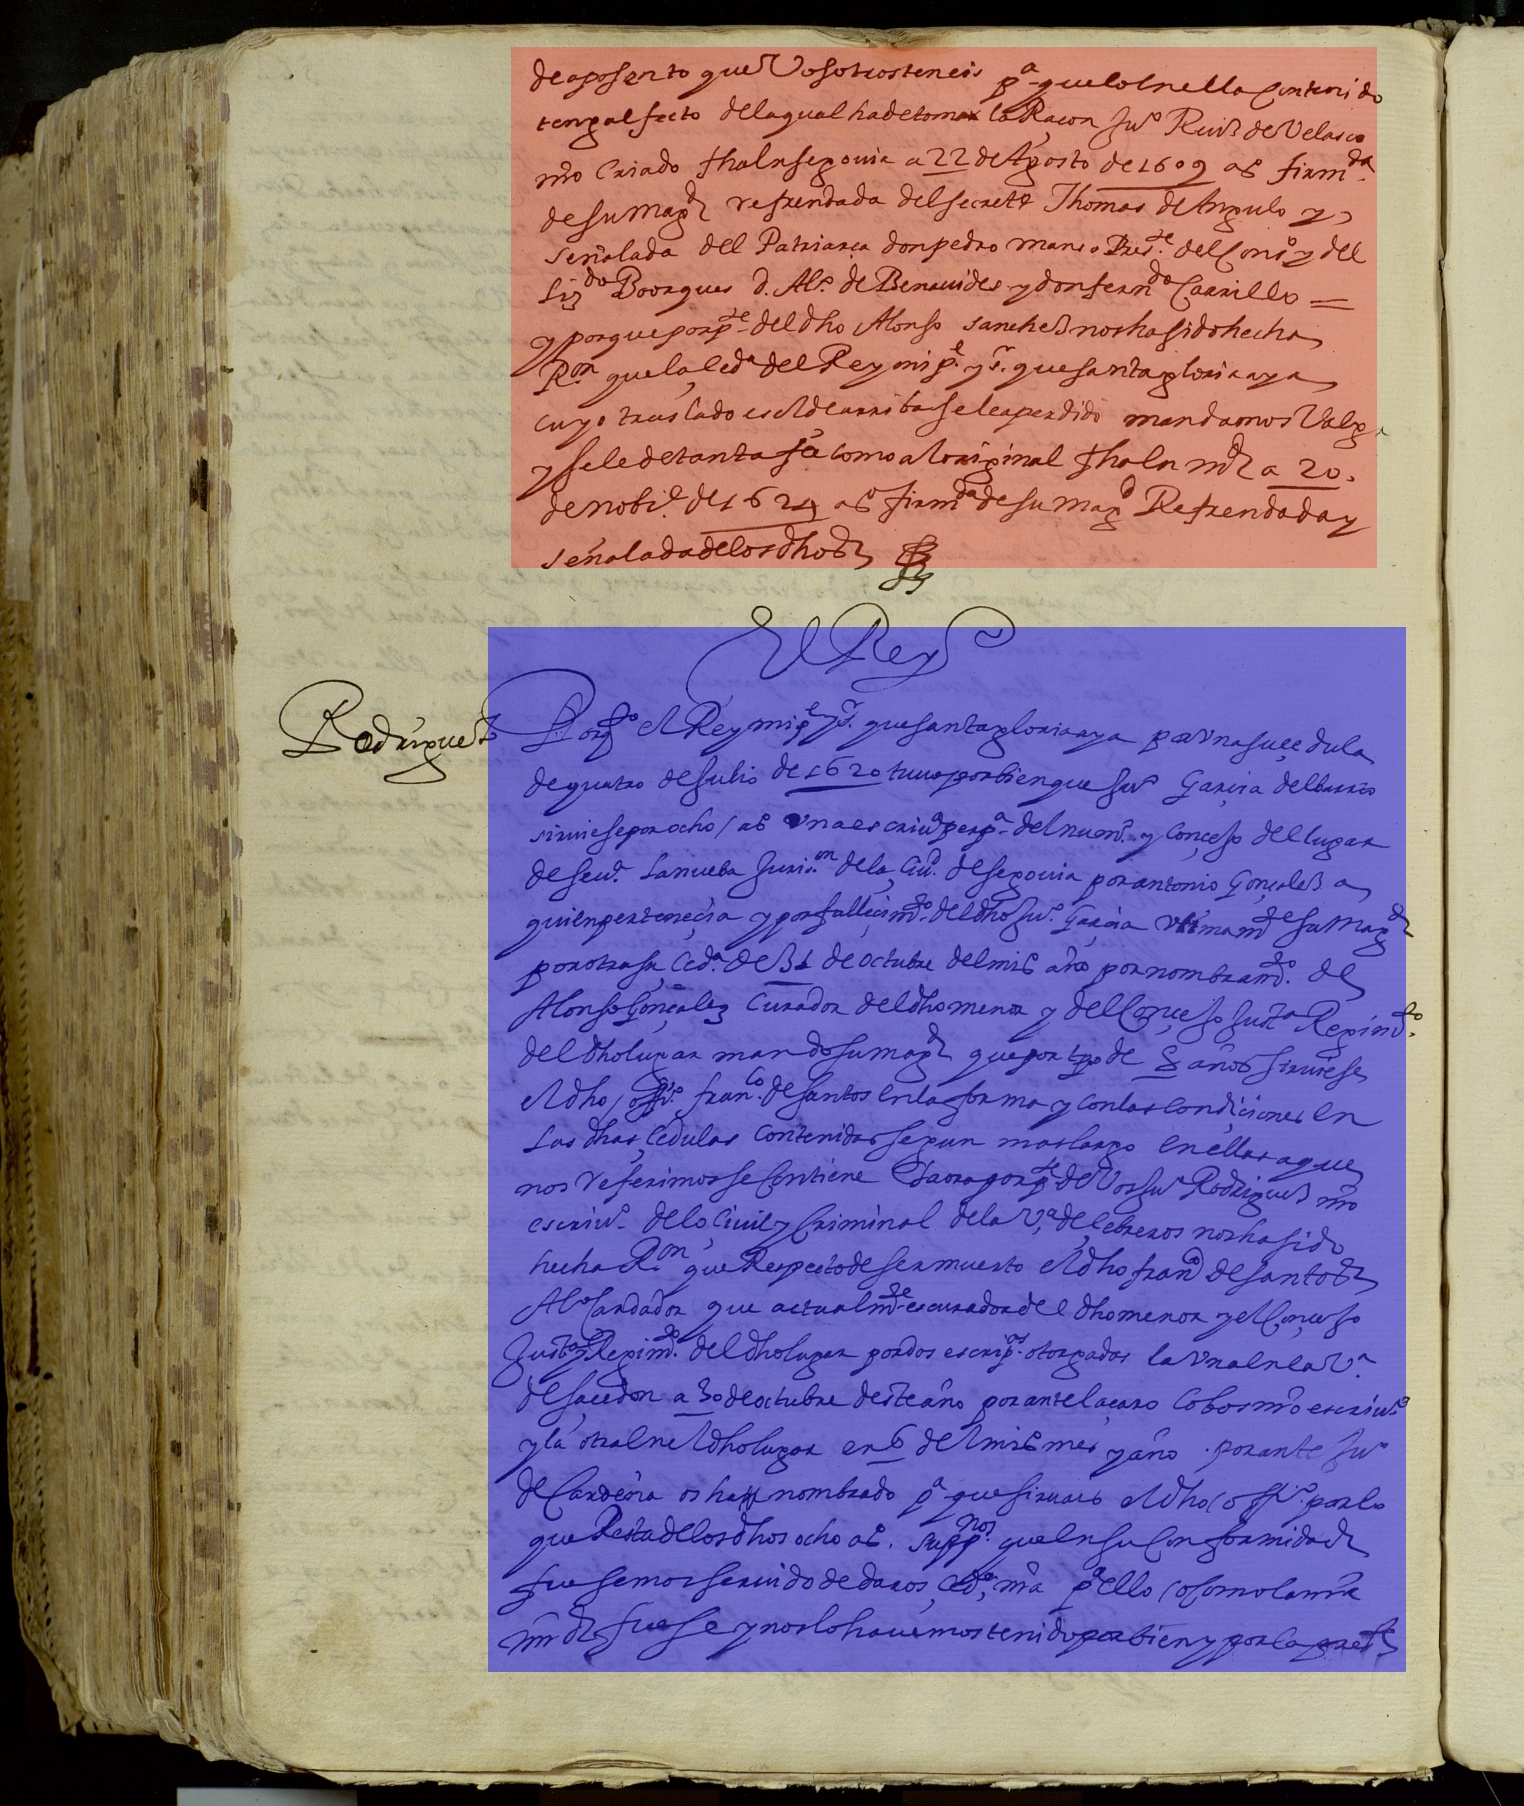 de aposento que Vosotros teneis pª que lo en ella contenido
tenga efecto de la qual ha de tomar la Raçon Juº Ruiz de Velasco
mrō criado fha en segouia a 22 de Agosto de 1609 as firmda
de su Magd refrendada del secrett Thomas de Angulo y
señalada del Patriarca don pedro manso Preste del Consº y del
Licdo Boorques D. Alº de Benauides y don ferndo Carrillo =
y porque por pte del dho Alonso sanchez nos ha sido hecha
Ron que la cedª del Rey mi pe y sr que santa gloria aya
cuyo traslado es el de arriba se le a perdido mandamos Valga
y se le de tanta fe como al original fha en md a 20.
de nobie de 1624 as firmda de su Magd Refrendada y
señalada de los dhos
El Rey
Rodriguez
Porqto el Rey mi pe y sr que santa gloria aya por vna su cedula
de quatro de Julio de 1620 tuuo por bien que Juº Garcia del barrio
siruiese por ocho as vna escriuª perpª del numº y Conçejo del lugar
de seuª la nueba Jurion de la Ciud de segouia por antonio Gonçalez a
quien perteneçia y por falleçimto del dho Juº Garcia vltimamte su Magd
por otra su cedª de 31 de octubre del mis año por nombramto de
Alonso Gonçalez Curador del dho menor y del Conçejo Justª Regimto
del dho lugar mando su magd que por tpo de 8 años siruiese
el dho offº franco de santos en la forma y con las condiciones en
las dhas cedulas contenidas segun mas largo en ellas a que
nos referimos se contiene E aora por pte de Vos Juº Rodriguez mrō
escriuº de lo Ciuil y Criminal de la Vª de Cebreros nos ha sido
hecha Ron que Respecto de ser muerto el dho franco de santos
Alº Candador que actualmte es curador del dho menor y el Conçejo
Justª y Regimto del dho lugar por dos escripras otorgadas la vna en la Vª
de sacedon a 30 de octubre deste año por ante laçaro Cobos mrō escriuº
y la otra en el dho lugar en 6 del mis mes y año por ante Juº
de Cardeña os han nombrado pª que siruais el dho offº por lo
que Resta de los dhos ocho as. suppnos que en su conformidad
fuesemos seruido de daros cedª mrā pª ello o como la mrā
md fuese y nos lo hauemos tenido por bien y por la preste